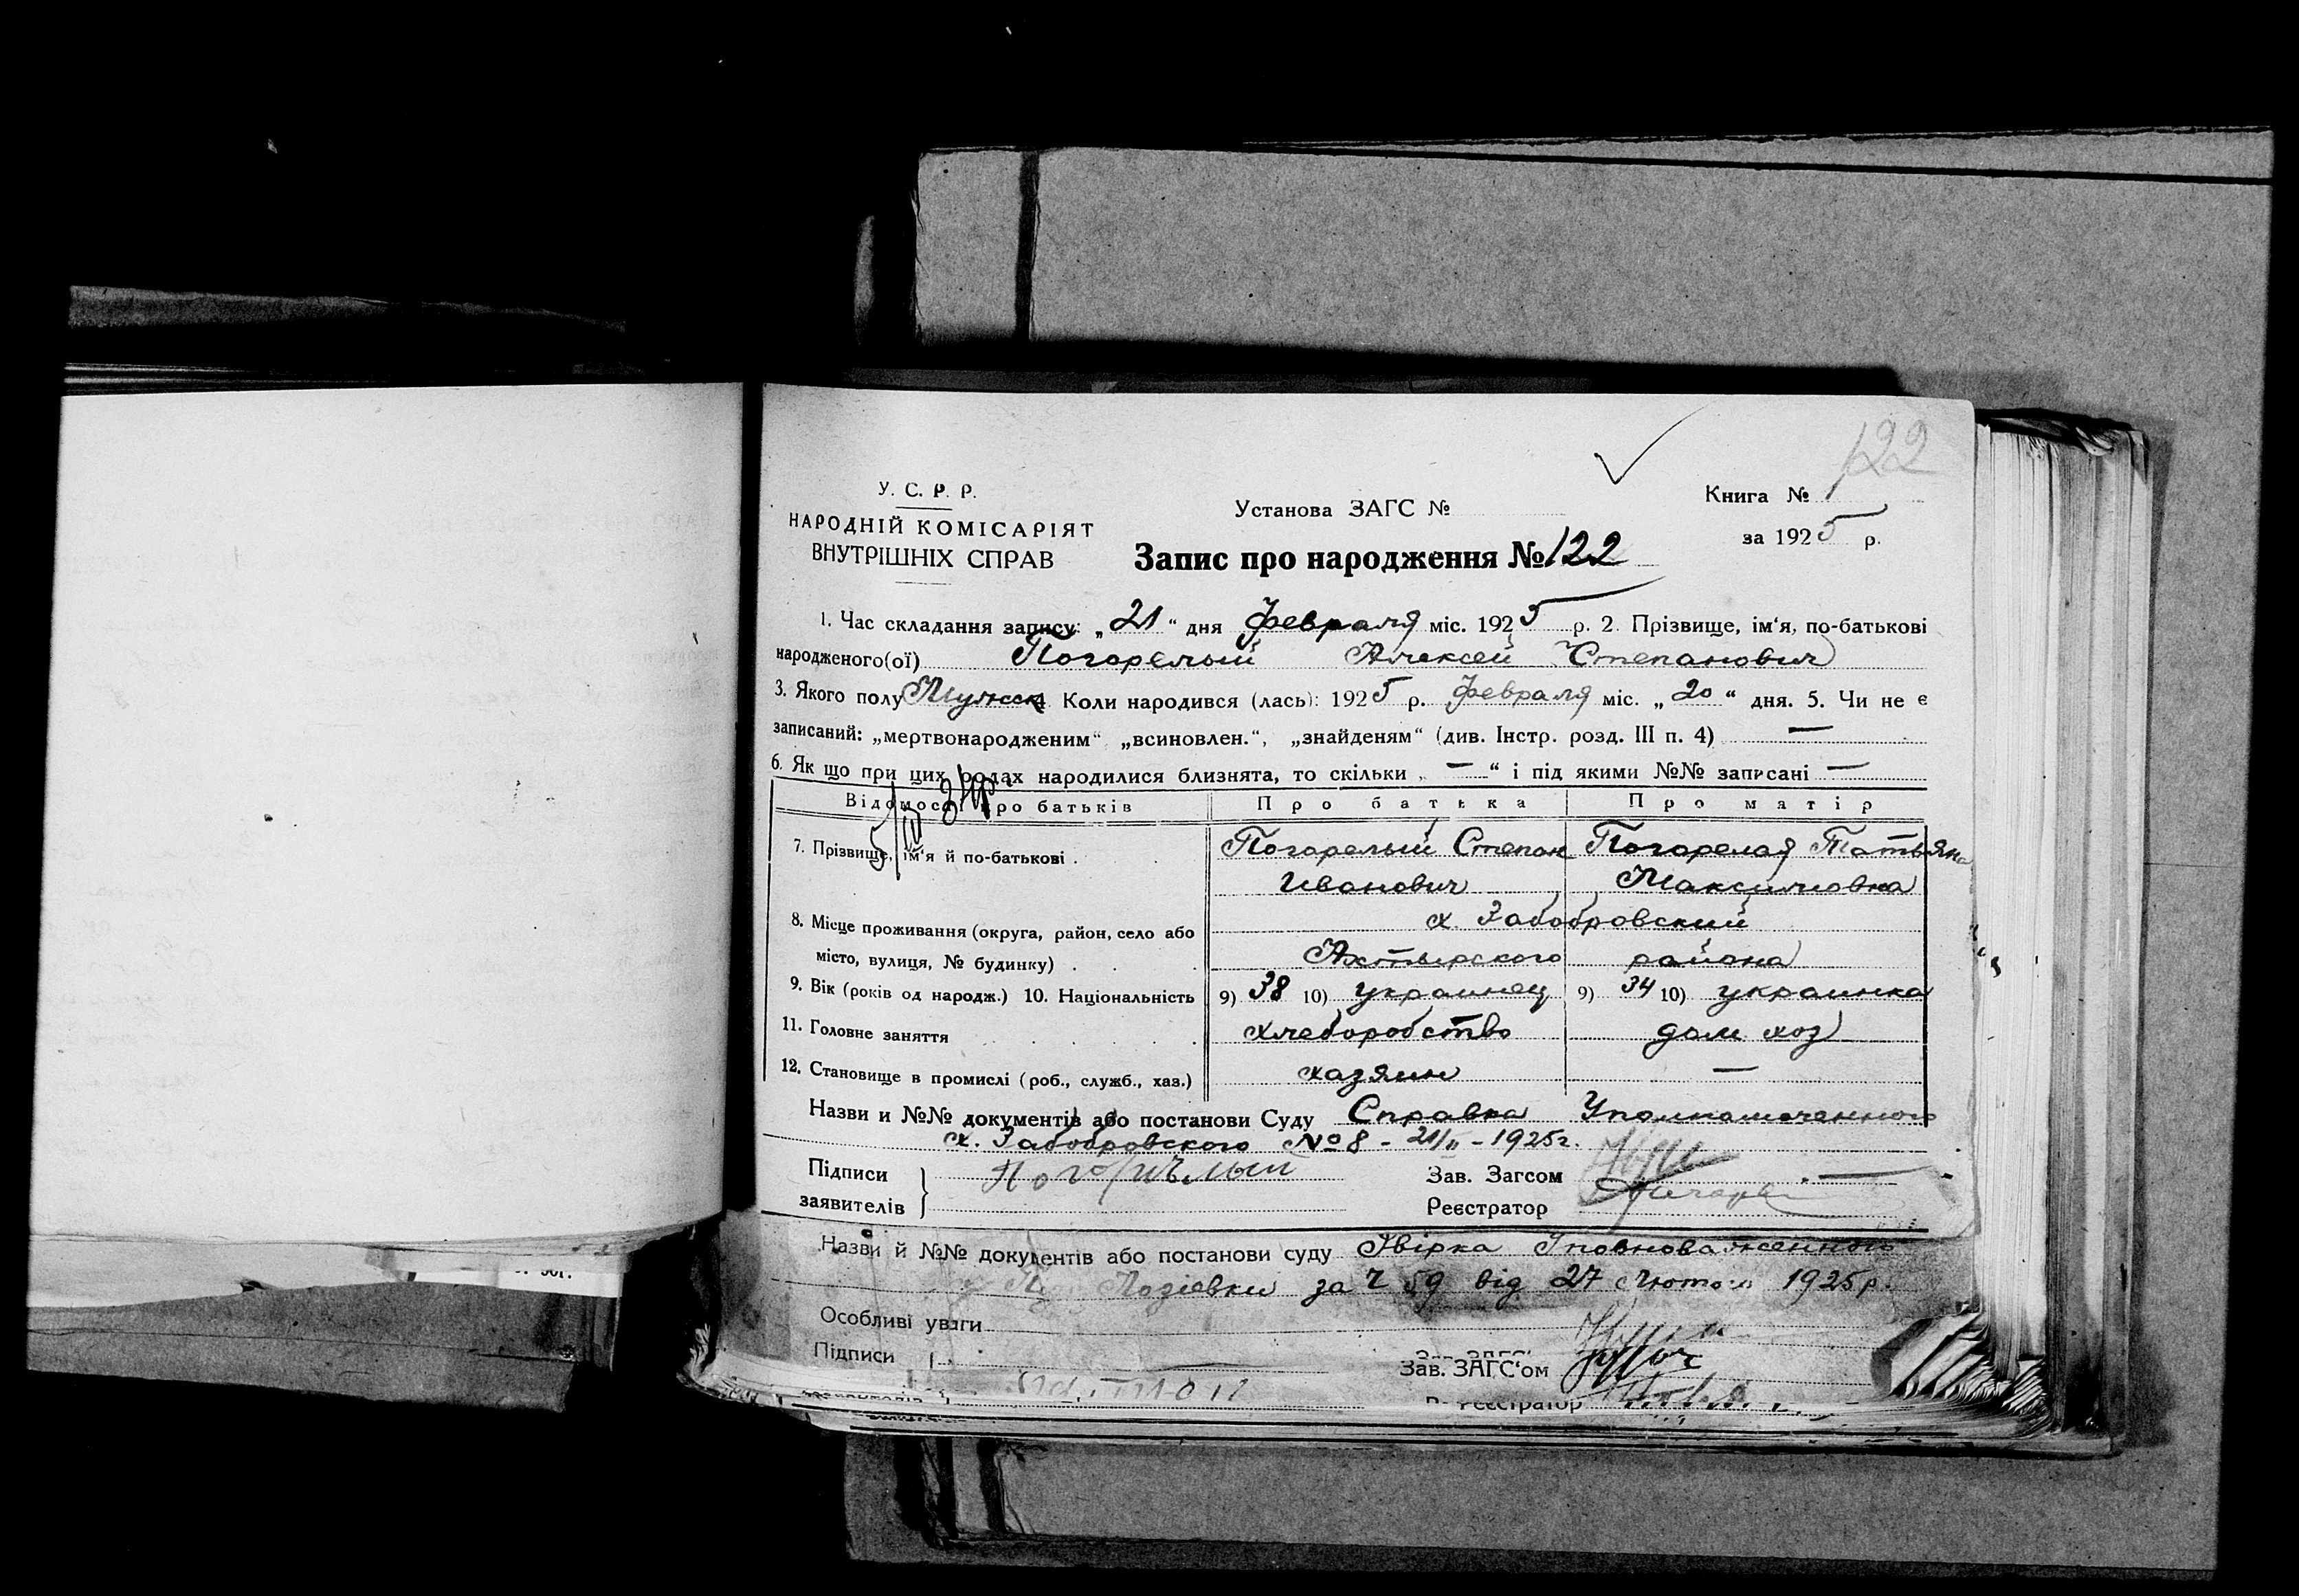 122
У. С. Р. Р.
НАРОДНІЙ КОМІСАРІЯТ
ВНУТРІШНІХ СПРАВ
Установа ЗАГС №
Книга №
за 1925 р.
Запис про народження № 122
1. Час складання запису: „21“ дня Февраля міс. 1925 р. 2. Прізвище, ім‘я, по-батькові
народженого(ої) Погорелый Алексей Степанович
3. Якого полу Мужск Коли народився (лась): 1925 р. Февраля міс. „20“ дня. 5. Чи не є
записаний: „мертвонародженим“ „всиновлен.“, „знайденям“ (див. Інстр. розд. III п. 4) —
6. Як що при цих родах народилися близнята, то скільки „—“ і під якими №№ записані —
Відомості про батьків Про батька Про матір
7. Прізвище, ім‘я й по-батькові . Погарелый Степан Погарелая Татьяна
Иванович Максимовна
8. Місце проживання (округа, район, село або х. Забобровский
місто, вулиця, № будинку) . . . Ахтырского района
9. Вік (років од народж.) 10. Національність 9) 38 10) украинец 9) 34 10) украинка
11. Головне заняття хлеборобство дом. хоз
12. Становище в промислі (роб., служб., хаз.) хазяин —
Назви и №№ документів або постанови Суду Справка Уполномоченного
х. Забобровского № 8 - 21/II - 1925г.
Підписи Погорелый Зав. Загсом
заявителів Реєстратор
Назви й №№ документів або постанови суду Звірка Уповноваженного
Лозіевки за Ч 59 від 27 Лютого 1925 р.
Особливі уваги
Підписи Зав. ЗАГС‘ом
Реєстратор